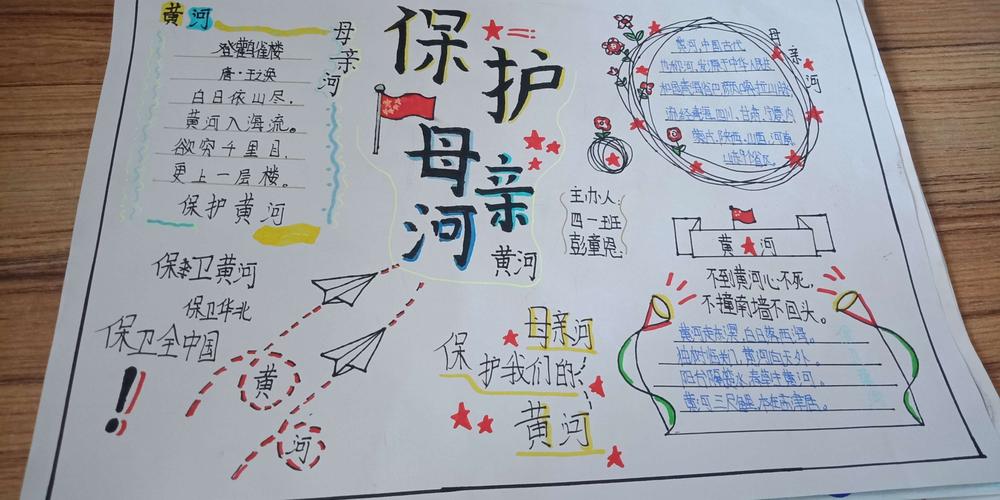 黄河
登鹳雀楼
唐·王之涣
白日依山尽，
黄河入海流。
欲穷千里目，
更上一层楼。
保护黄河
母亲河
保护
母亲
河
黄河
主办人：
四一班
彭童恩
母亲河
黄河，中国古代
流经青海、四川、甘肃、宁夏、内
蒙古、陕西、山西、河南、
山东9个省区。
黄河
不到黄河心不死，
不撞南墙不回头。
黄河走东溟，白日落西海。
独树临关门，黄河向天外。
阳台隔楚水，春草生黄河。
黄河三尺鲤，本在孟津居。
保卫黄河
保卫华北
保卫全中国
!
黄
河
母亲河
保护我们的
黄河